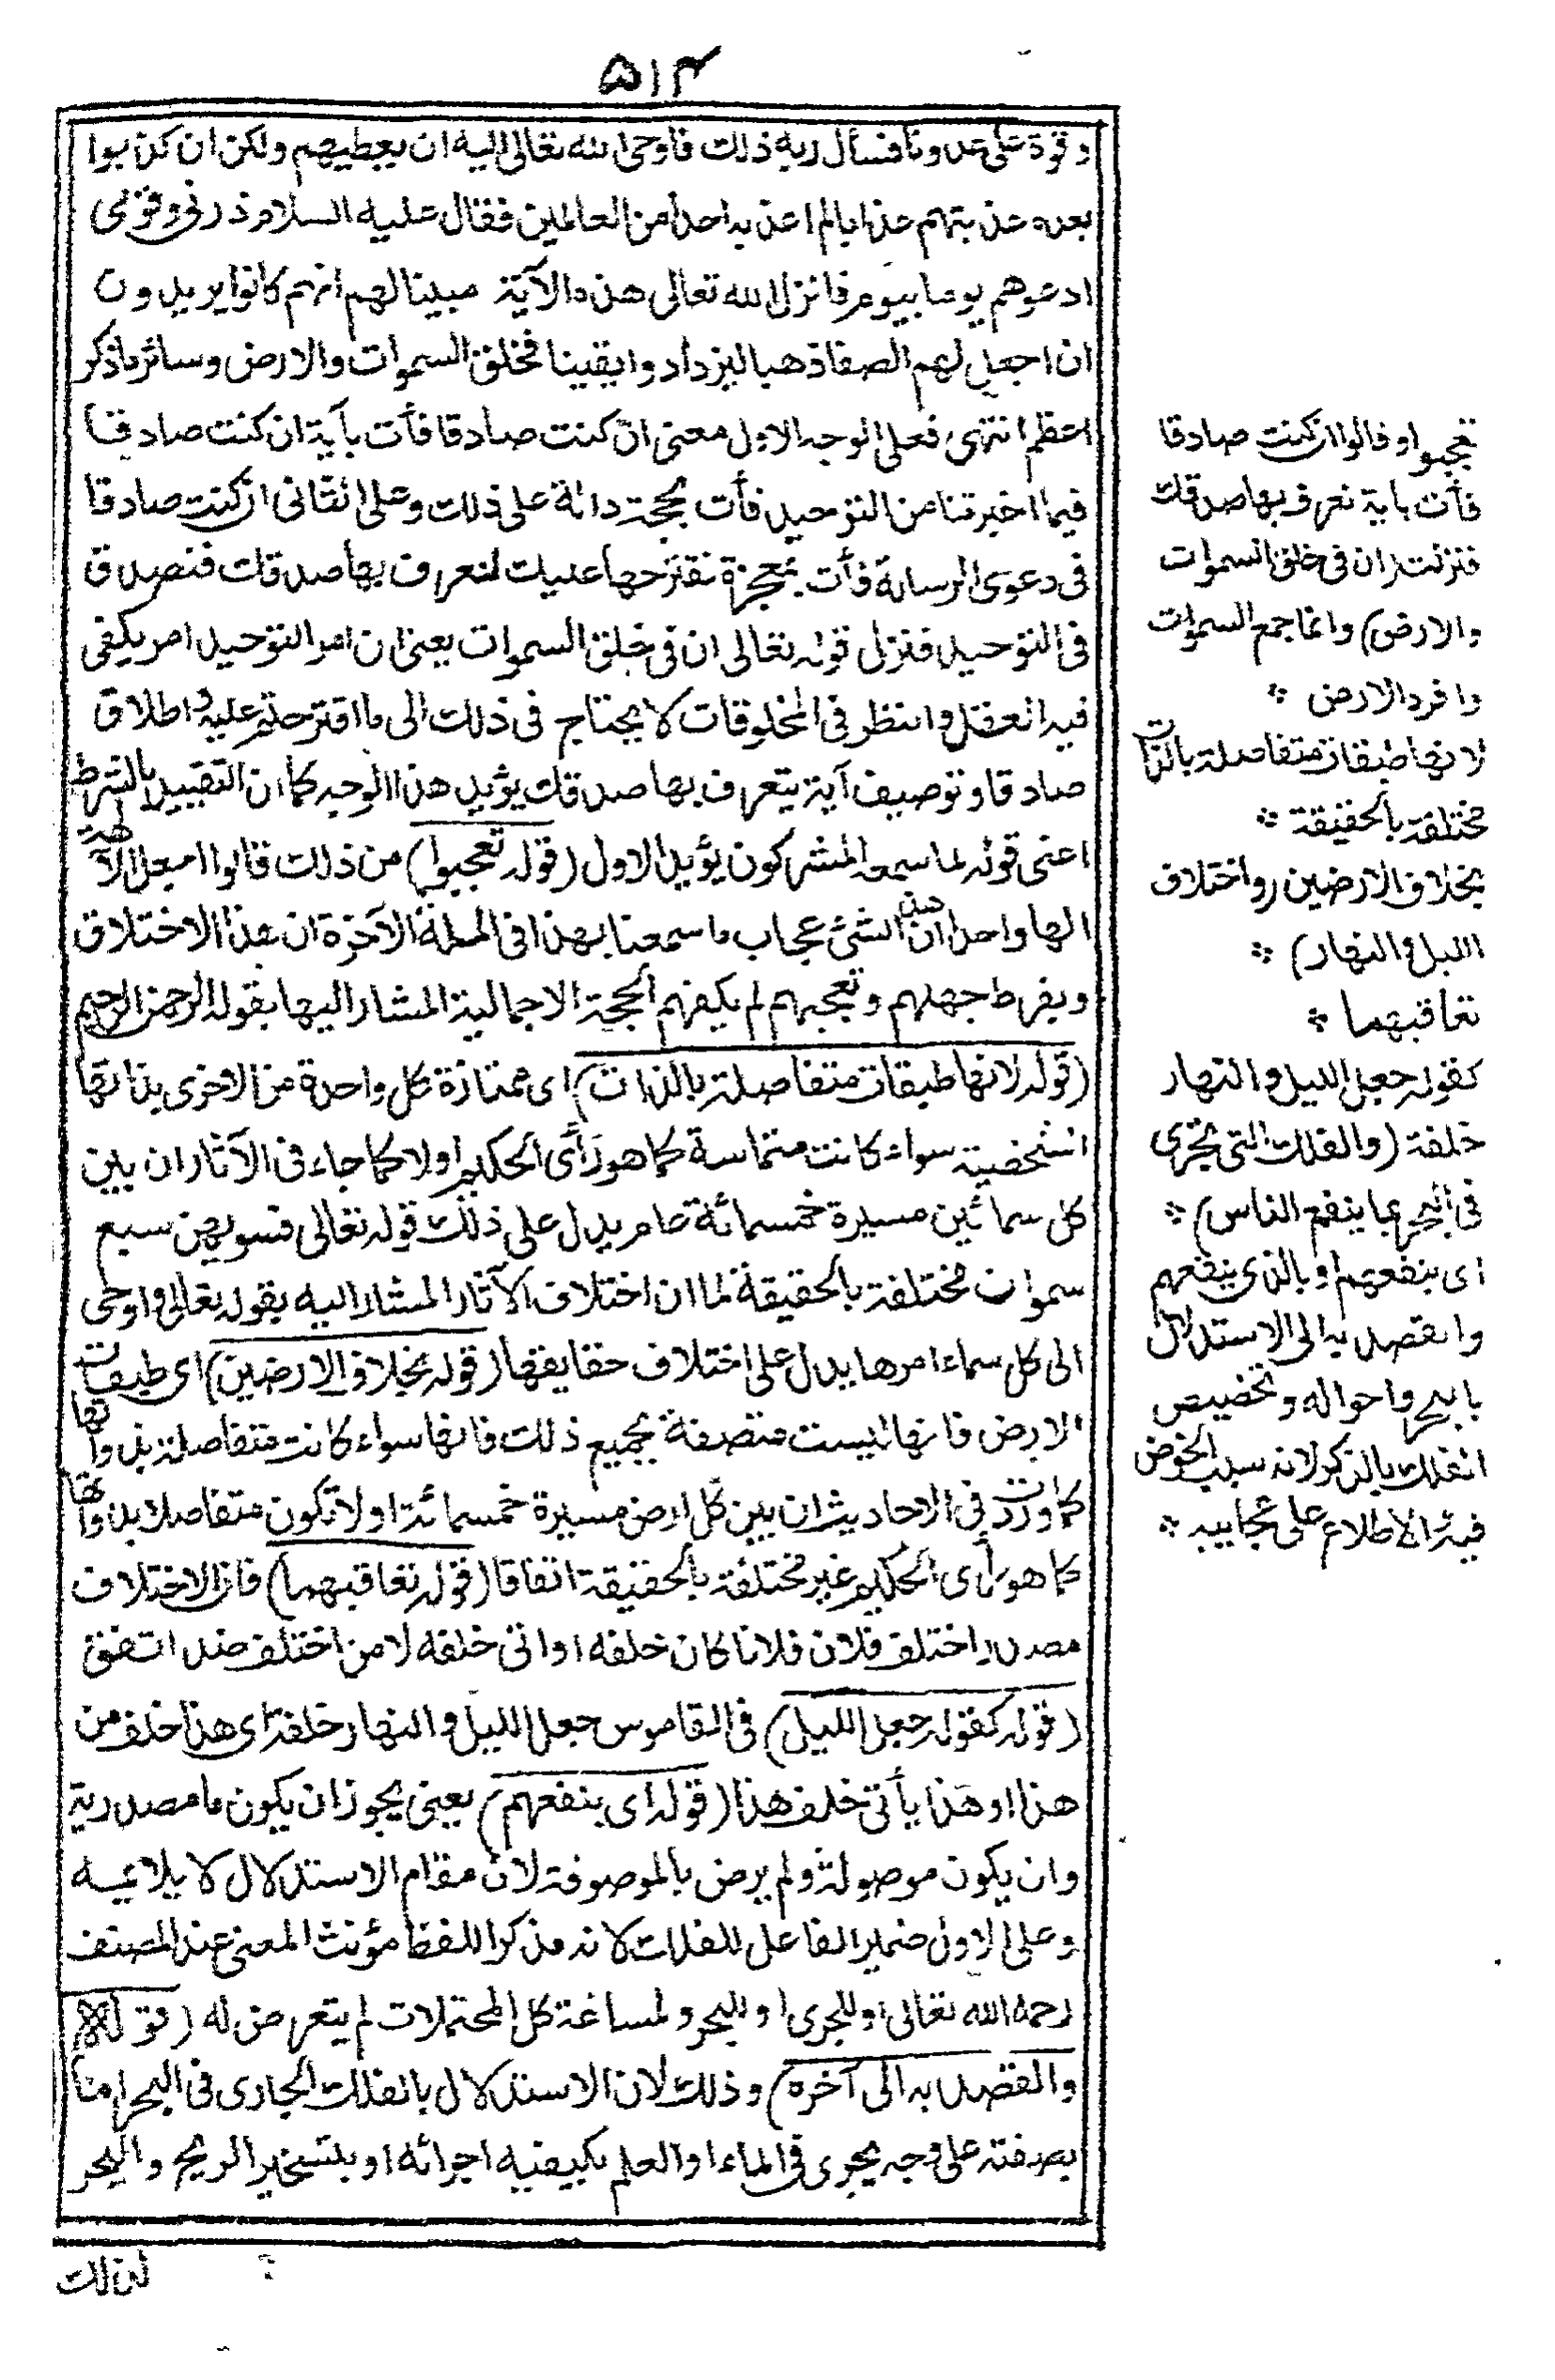 ٥١٤
وقوة على عدونا فسأل ربه ذلك فاوحى الله تعالى اليه ان يعطيهم ولكن ان كذبوا
بعده عذبتهم عذابا لم اعذبه احدا من العالمين فقال عليه السلام ذرنى وقومى
ادعوهم يوما بيوم فانزل الله تعالى هذه الآية مبينا لهم انهم كانوا يريدون
ان اجعل لهم الصفا ذهبا ليزدادوا يقينا فخلق السموات والارض وسائر ما ذكر
اعظم انتهى فعلى الوجه الاول معنى ان كنت صادقا فأت بآية ان كنت صادقا
فيما اخبرتنا من التوحيد فأت بحجة دالة على ذلك وعلى الثانى ان كنت صادقا
فى دعوى الرسالة فأت بمعجزة نقترحها عليك لنعرف بها صدقك فنصدق
فى التوحيد فنزل قوله تعالى ان فى خلق السموات يعنى ان امر التوحيد امر يكفى
فيه العقل والنظر فى المخلوقات لا يحتاج فى ذلك الى ما اقترحتم عليه واطلاق
صادقا وتوصيف آية بتعرف بها صدقك يؤيد هذا الوجه كما ان التقييد بالشرط
اعنى قوله لما سمعه المشركون يؤيد الاول (قوله تعجبوا) من ذلك قالوا اجعل الآلهة
الها واحدا ان هذا لشئ عجاب ما سمعنا بهذا فى الملة الآخرة ان هذا الا اختلاق
وبفرط جهلهم وتعجبهم لم يكفهم الحجة الاجمالية المشار اليها بقوله الرحمن الرحيم
(قوله لانها طبقات متفاصلة بالذات) اى ممتازة كل واحدة من الاخرى بذاتها
الشخصية سواء كانت متماسة كما هو رأى الحكيم اولا كما جاء فى الآثار ان بين
كل سمائين مسيرة خمسمائة عام يدل على ذلك قوله تعالى فسويهن سبع
سموات مختلفة بالحقيقة لما ان اختلاف الآثار المشار اليه بقوله تعالى واوحى
الى كل سماء امرها يدل على اختلاف حقايقها (قوله بخلاف الارضين) اى طبقات
الارض فانها ليست متصفة بجميع ذلك فانها سواء كانت متفاصلة بذواتها
كما ورد فى الاحاديث ان بين كل ارض مسيرة خمسمائة او لا تكون متفاصلا بذواتها
كما هو رأى الحكيم غير مختلفة بالحقيقة اتفاقا (قوله تعاقبهما) فان الاختلاف
مصدر اختلف فلان فلانا كان خلفه او اتى خلفه لا من اختلف ضد اتفق
(قوله كقوله جعل الليل) فى القاموس جعل الليل والنهار خلفة اى هذا خلف من
هذا او هذا يأتى خلف هذا (قوله اى بنفعهم) يعنى يجوز ان يكون ما مصدرية
وان يكون موصولة ولم يرض بالموصوفة لان مقام الاستدلال لا يلايمه
وعلى الاول ضمير الفاعل للفلك لانه مذكر اللفظ مؤنث المعنى عند المصنف
رحمه الله تعالى او للجرى او للبحر ولمساغة كل المحتملات لم يتعرض له (قوله
والقصد به الى آخره) وذلك لان الاستدلال بالفلك الجارى فى البحر اما
بصفته على وجه يجرى فى الماء او العلم بكيفيه اجرائه او بتسخير الريح والبحر
لذلك
تعجبوا وقالوا ان كنت صادقا
فأت باية نعرف بها صدقك
فنزلت (ان فى خلق السموات
والارض) وانما جمع السموات
وافرد الارض ؞
لانها طبقات متفاصلة بالذات
مختلفة بالحقيقة ؞
بخلاف الارضين (واختلاف
الليل والنهار) ؞
تعاقبهما ؞
كقوله جعل الليل والنهار
خلفة (والفلك التى تجرى
فى البحر بما ينفع الناس) ؞
اى بنفعهم او بالذى ينفعهم
والقصد به الى الاستدلال
بالبحر واحواله وتخصيص
الفلك بالذكر لانه سبب الخوض
فيه والاطلاع على عجايبه ؞